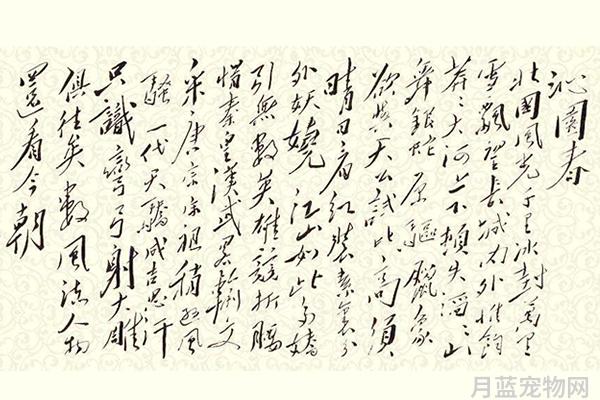 沁園春
北國風光千里冰封萬里
雪飄望长城内外惟餘
莽々大河上下頓失滔々山
舞銀蛇原驅臘象
欲與天公試比高须
晴日看红裝素裹分
外妖嬈江山如此多嬌
引無數英雄競折腰
惜秦皇漢武略輸文
采唐宗宋祖稍遜風
騷一代天驕成吉思汗
只識彎弓射大雕
俱往矣數風流人物
還看今朝
月蓝宠物网